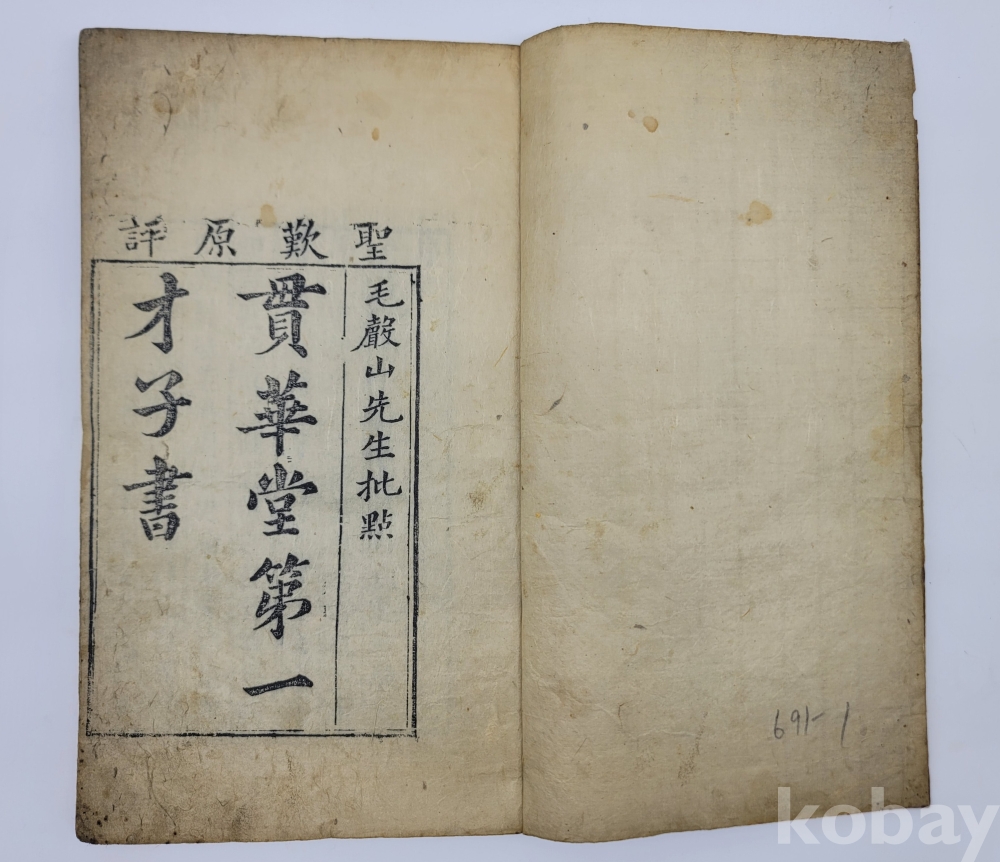 聖歎原評
毛聲山先生批點
貫華堂第一
才子書
691-1
kobay